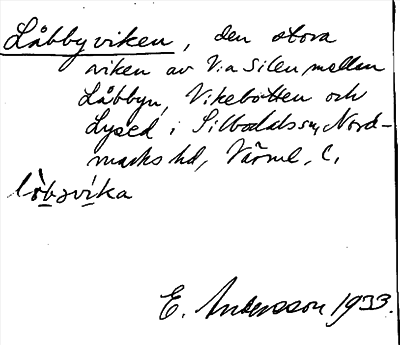 Låbbyviken, den stora
viken av V:a Silen mellan
Låbbyn, Vikebotten och
Lysed i Silbodals sn, Nord-
marks hd, Värml. l,
lòbɔvíka
E. Andersson 1933.